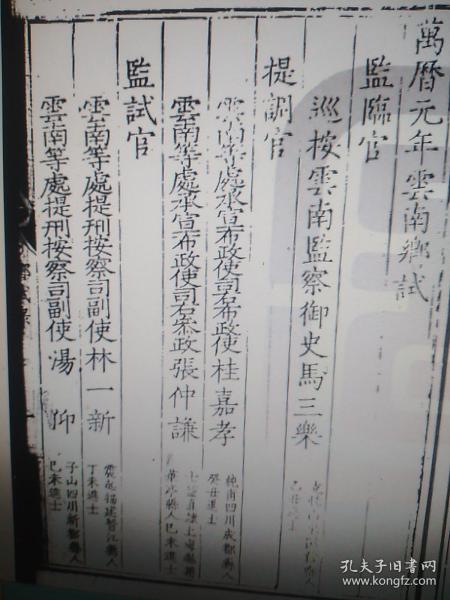 萬曆元年雲南鄉試
監臨官
巡按雲南監察御史馬三樂
提調官
雲南等處承宣布政使司右布政使桂嘉孝
純南四川成都縣人
癸丑進士
雲南等處承宣布政使司右參政張仲謙
華亭縣人己未進士
監試官
雲南等處提刑按察司副使林一新
震起福建晉江縣人
丁未進士
雲南等處提刑按察司副使湯仰
子山四川新都縣人
己未進士
孔夫子旧书网